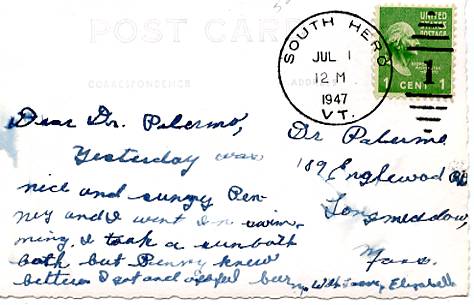 POST CARD
CORRESPONDENCE
ADDRESS
SOUTH HERO
JUL 1
12 M
1947
VT.
UNITED
STATES
POSTAGE
1 CENT 1
1
Dear Dr. Palermo,
Yesterday was
nice and sunny Pen-
ny and I went in swim-
ming. I took a sunbath
both but Penny knew
better I got an awful burn
With love, Elizabeth
Dr Palermo
189 Englewood Rd
Longmeddow,
Mass.